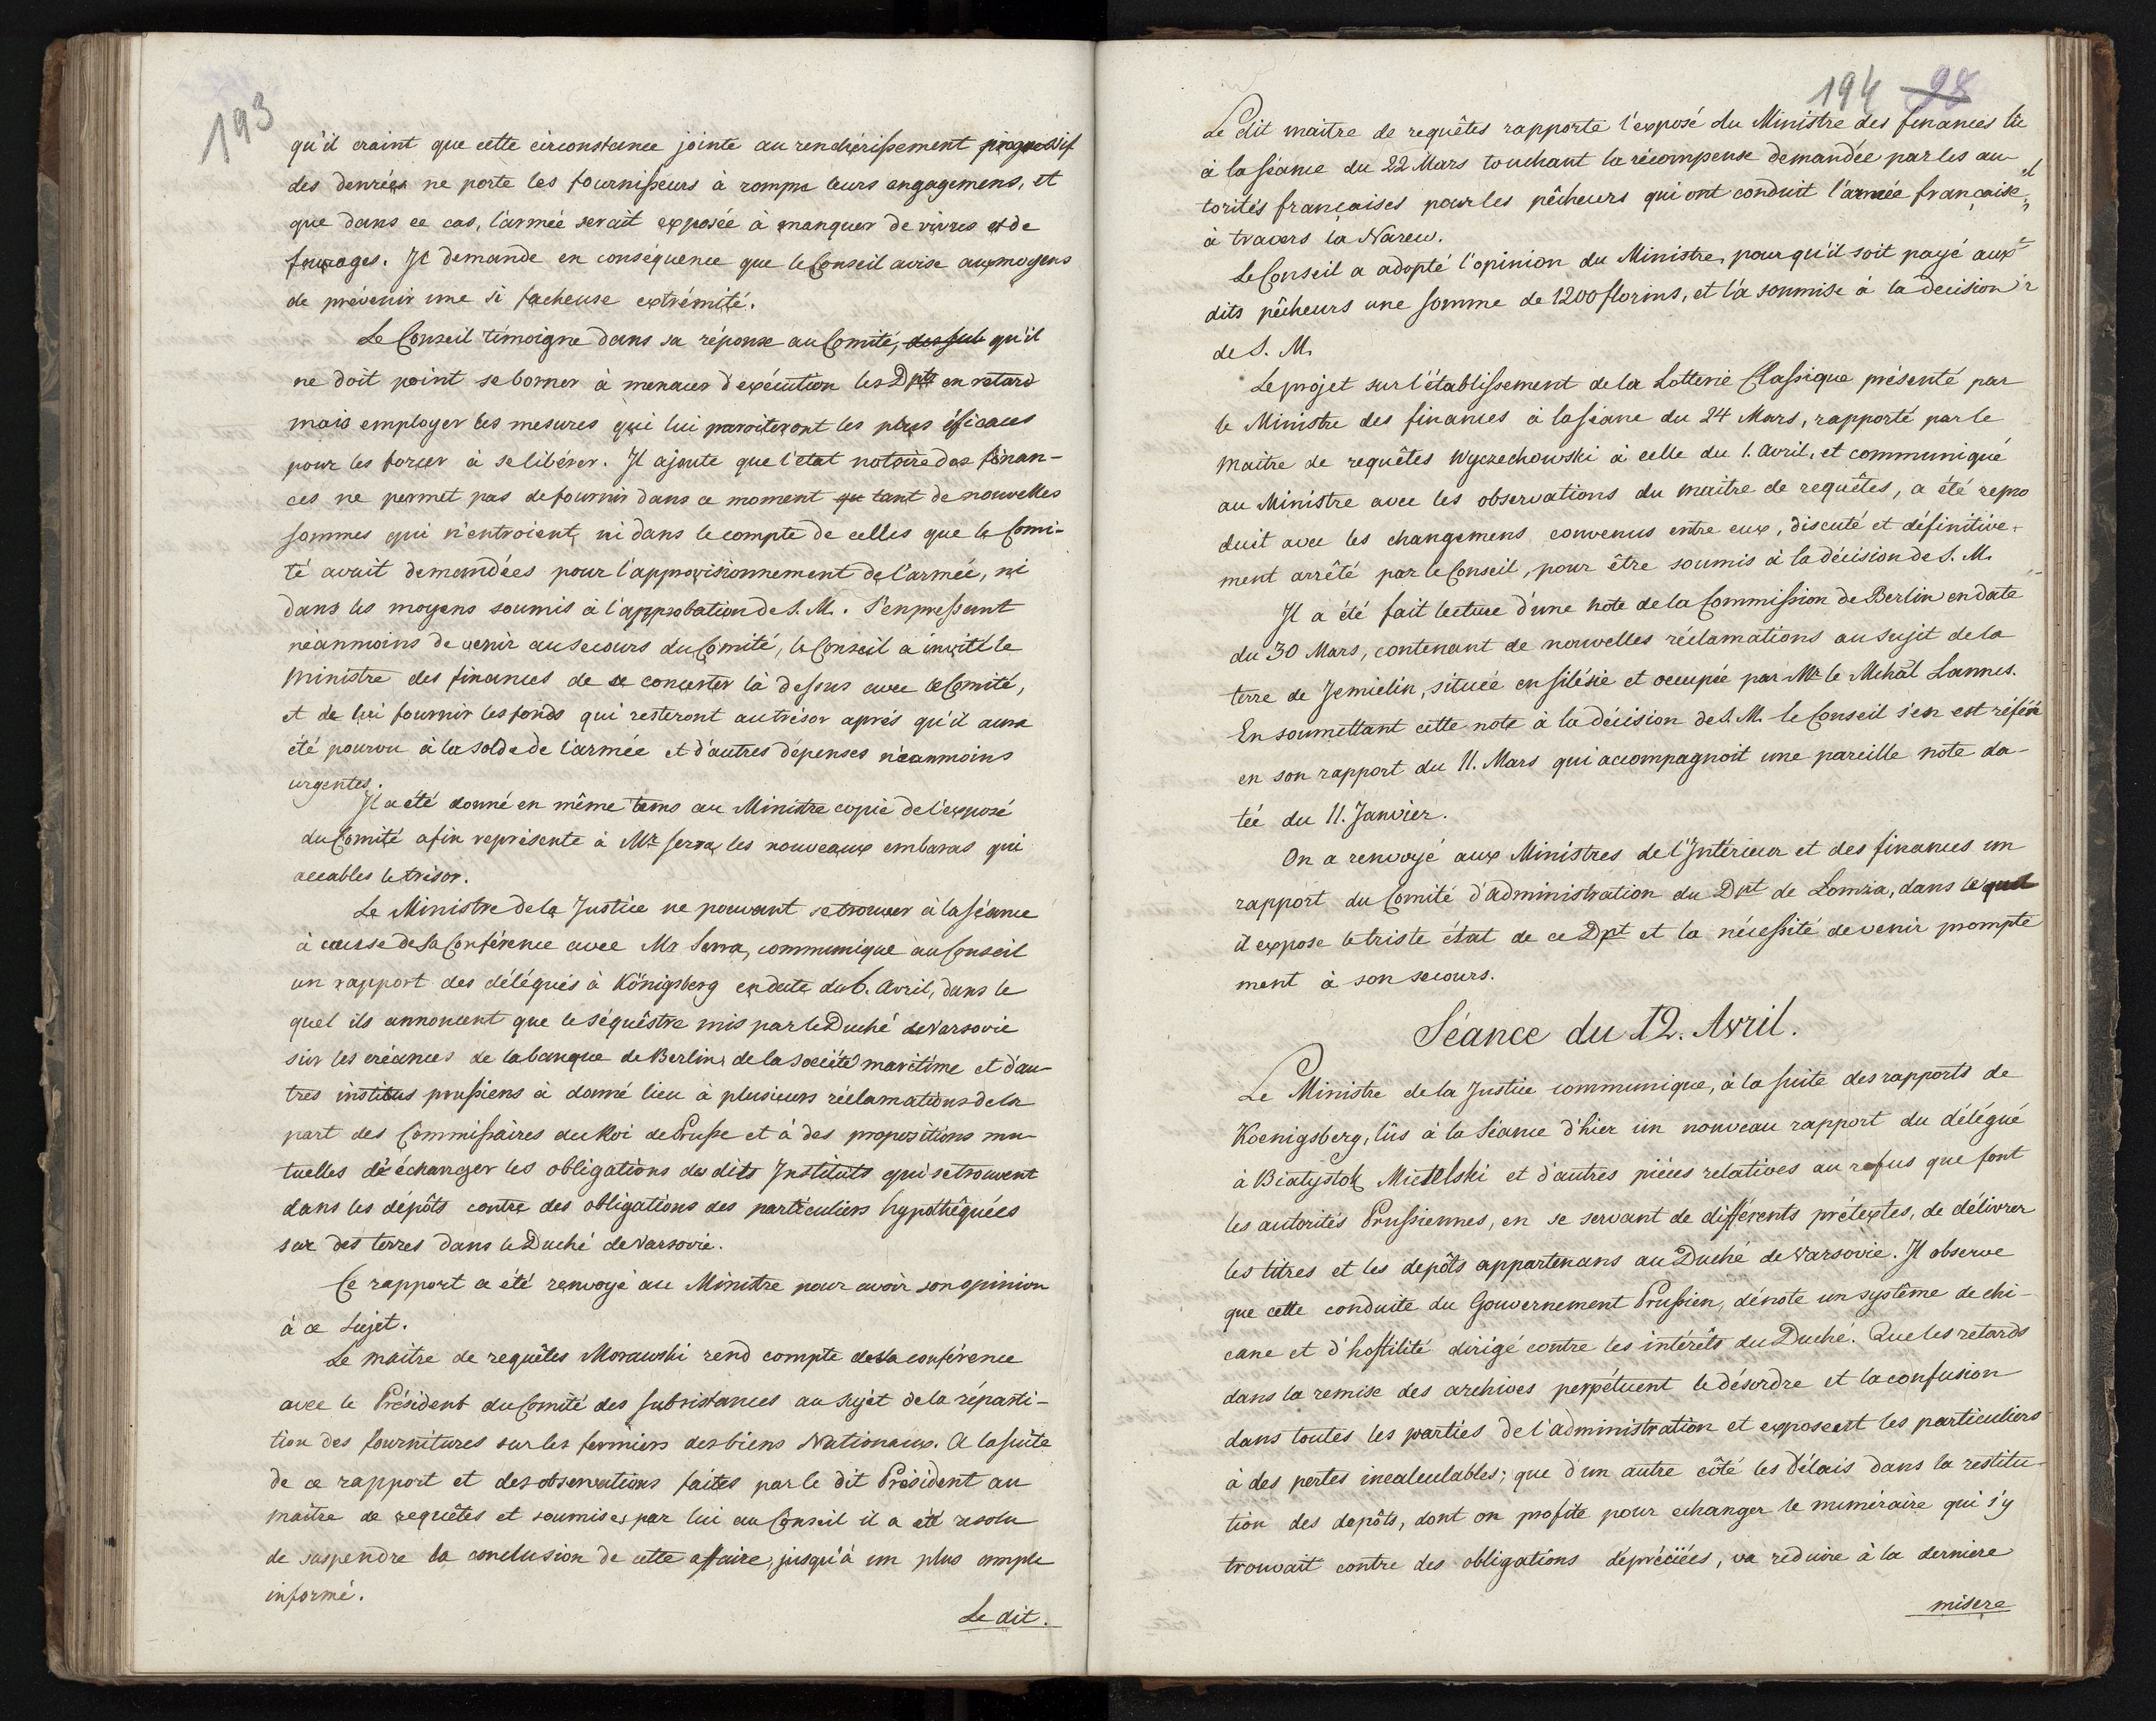 193
qu'il craint que cette circonstance jointe au renchérissement progressif
des denrées ne porte les fournisseurs à rompre leurs engagemens, et
que dans ce cas, l'armée serait exposée à manquer de vivres et de
fourages. Il demande en conséquence que le Conseil avise aux moyens
de prévenir une si facheuse extrémité.
Le Conseil témoigne dans sa réponse au Comité, qu'il
ne doit point se borner à menacer d'exécution les Dpts en retard
mais employer les mesures qui lui paroiteront les plus éficaces
pour les forcer à se libérer. Il ajoute que l'etat notoire des finan-
ces ne permet pas de fournir dans ce moment qu tant de nouvelles
sommes qui n'entroient, ni dans le compte de celles que le Comi-
té avait demandées pour l'approvisionnement de l'armée, ni
dans les moyens soumis à l'approbation de S. M. S'enpressant
néanmoins de venir au secours du Comité, le Conseil a invité le
Ministre des finances de se concerter là dessus avec le Comité,
et de lui fournir les fonds qui resteront au trésor aprés qu'il aura
été pourvu à la solde de l'armée et d'autres dépenses néanmoins
urgentes.
Il a été donné en même tems au Ministre copie de l'exposé
du Comité afin représente à Mr Serra, les nouveaux embaras qui
accables le trésor.
Le Ministre de la Justice ne pouvant se trouver à la séance
à cause de sa Conférence avec Mr Serra, communique au Conseil
un rapport des délégués à Königsberg en date du 6. Avril, dans le
quel ils annoncent que le séquêstre mis par le Duché de Varsovie
sur les créances de la banque de Berlin, de la Société maritime et d'au-
tres institus prussiens à donné lieu à plusieurs réclamations de la
part des Commissaires du Roi de Prusse et à des propositions mu-
tuelles de échanger les obligations des dits Instituts qui se trouvent
dans les dépôts contre des obligations des particuliers hypothéquées
sur des terres dans le Duché de Varsovie.
Ce rapport a été renvoyé au Ministre pour avoir son opinion
à ce sujet.
Le maitre de requêtes Morawski rend compte de sa conférence
avec le Président du Comité des subsistances au sujet de la réparti-
tion des fournitures sur les fermiers des biens Nationaux. A la suite
de ce rapport et des observations faites par le dit Président au
maître de requêtes et soumises par lui au Conseil il a été resolu
de suspendre la conclusion de cette affaire, jusqu'à un plus ample
informé.
Le dit.
194 98
Le dit maitre de requêtes rapporte l'exposé du Ministre des finances lû
à la séance du 22 Mars touchant la récompense demandée par les au-
torités françaises pour les pêcheurs qui ont conduit l'armée française
à travers la Narew.
Le Conseil a adopté l'opinion du Ministre, pour qu'il soit payé aux
dits pêcheurs une somme de 1200 florins, et l'a soumise à la decision
de S. M.
Le projet sur l'établissement de la Lotterie Classique présenté par
le Ministre des finances à la séance du 24 Mars, rapporté par le
maitre de requêtes Wyczechowski à celle du 1. Avril, et communiqué
au Ministre avec les observations du maitre de requêtes, a été repro
duit avec les changemens convenus entre eux, discuté et définitive-
ment arrêté par le Conseil, pour être soumis à la décision de S. M.
Il a été fait lecture d'une note de la Commission de Berlin en date
du 30 Mars, contenant de nouvelles réclamations au sujet de la
terre de Jemielin, située en silésie et occupée par Mr le Mchal Lannes.
En soumettant cette note à la décision de S. M. le Conseil s'en est référé
en son rapport du 11. Mars qui accompagnoit une pareille note da-
tée du 11. Janvier.
On a renvoyé aux Ministres de l'Intérieur et des finances un
rapport du Comité d'administration du Dpt de Lomza, dans lequel
il expose le triste état de ce Dpt et la nécessité de venir prompte
ment à son secours.
Séance du 12. Avril.
Le Ministre de la Justice communique, à la suite des rapports de
Koenigsberg, lûs à la Séance d'hier un nouveau rapport du délégué
à Bialystok Mielski et d'autres pièces relatives au refus que font
les autorités Prussiennes, en se servant de différents prétextes, de délivrer
les titres et les depôts appartenans au Duché de Varsovie. Il observe
que cette conduite du Gouvernement Prussien, dénote un systême de chi-
cane et d'hostilité dirigé contre les intérêts du Duché. Que les retards
dans la remise des archives perpétuent le désordre et la confusion
dans toutes les parties de l'administration et exposent les particuliers
à des pertes incalculables; que d'un autre côté les délais dans la restitu-
tion des depôts, dont on profite pour echanger le numéraire qui s'y
trouvait contre des obligations dépréciées, va reduire à la derniere
misere